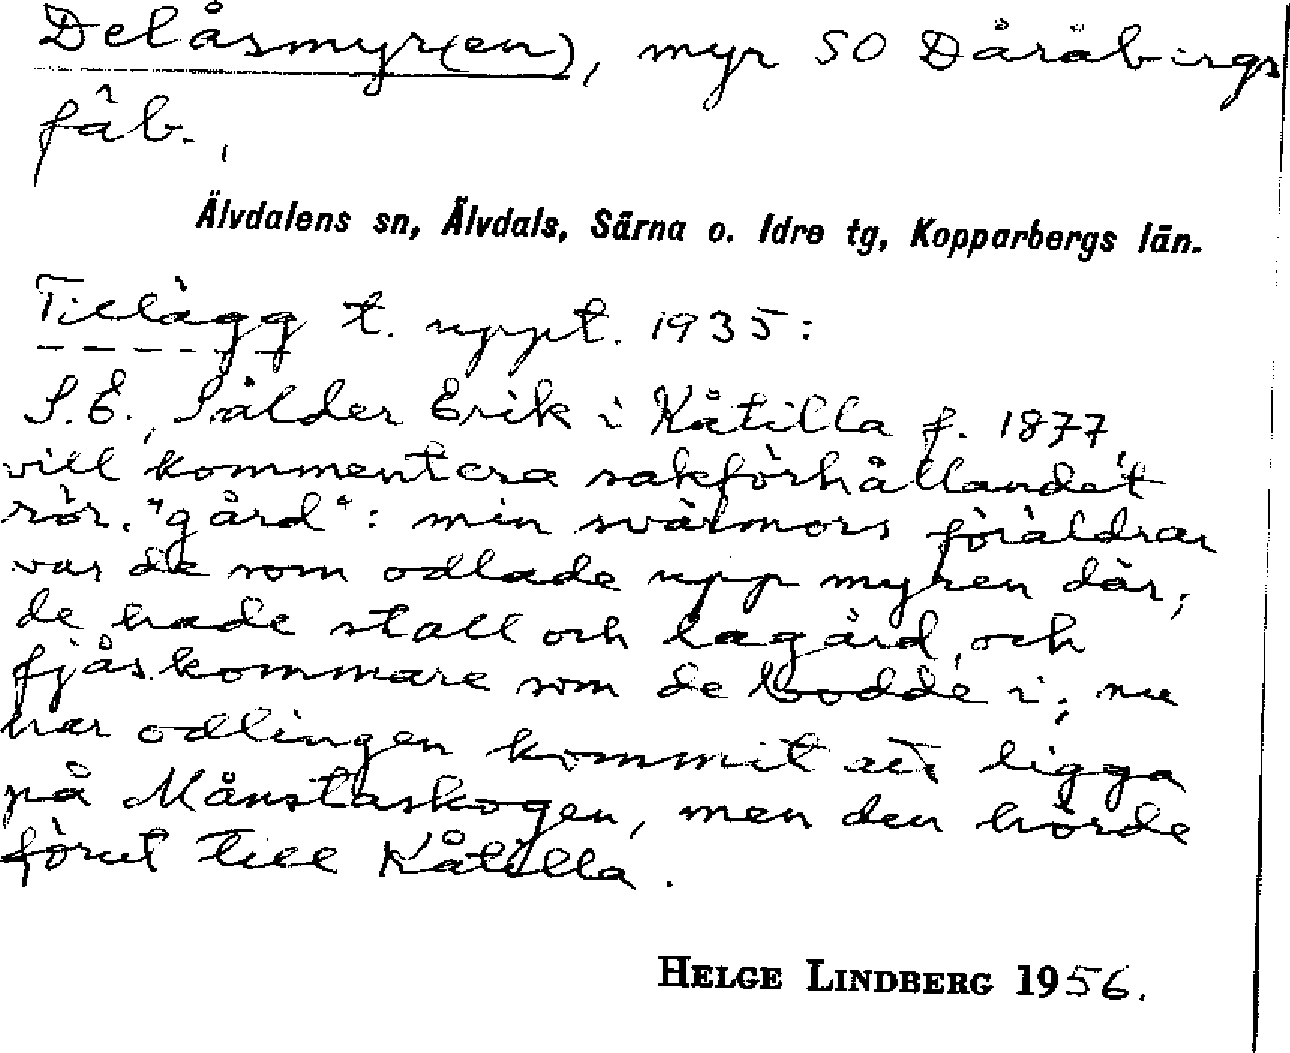 Delåsmyr(en), myr SO Dåråbergs
fäb.,
Älvdalens sn, Älvdals, Särna o. Idre tg, Kopparbergs län.
Tillägg t. uppt. 1935:
S.E., Sålder Erik i Kåtilla f. 1877,
vill kommentera sakförhållandet
rör. "gård": min svärmors föräldrar
var de som odlade upp myren där;
de hade stall och lagård, och
fjåskommare som de bodde i; nu
har odlingen kommit att ligga
på Månstaskogen, men den hörde
förut till Kåtilla.
HELGE LINDBERG 1956.